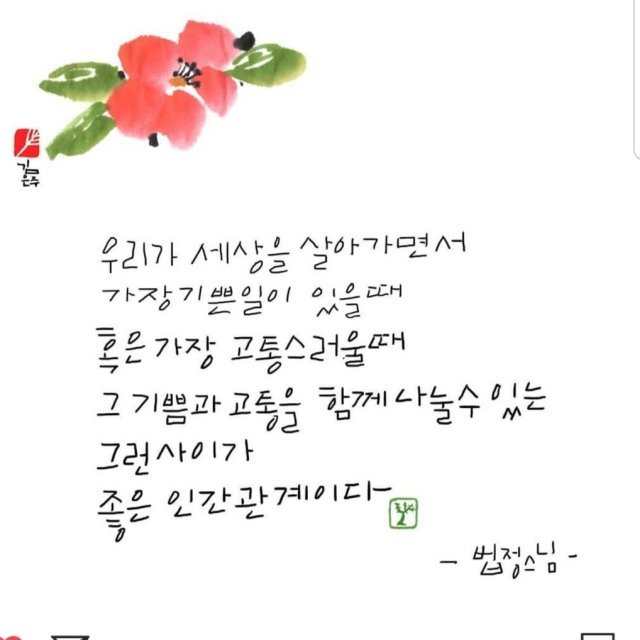 김
은주
우리가 세상을 살아가면서
가장기쁜일이 있을때
혹은 가장 고통스러울때
그 기쁨과 고통을 함께 나눌수 있는
그런사이가
좋은 인간관계이다
- 법정스님 -